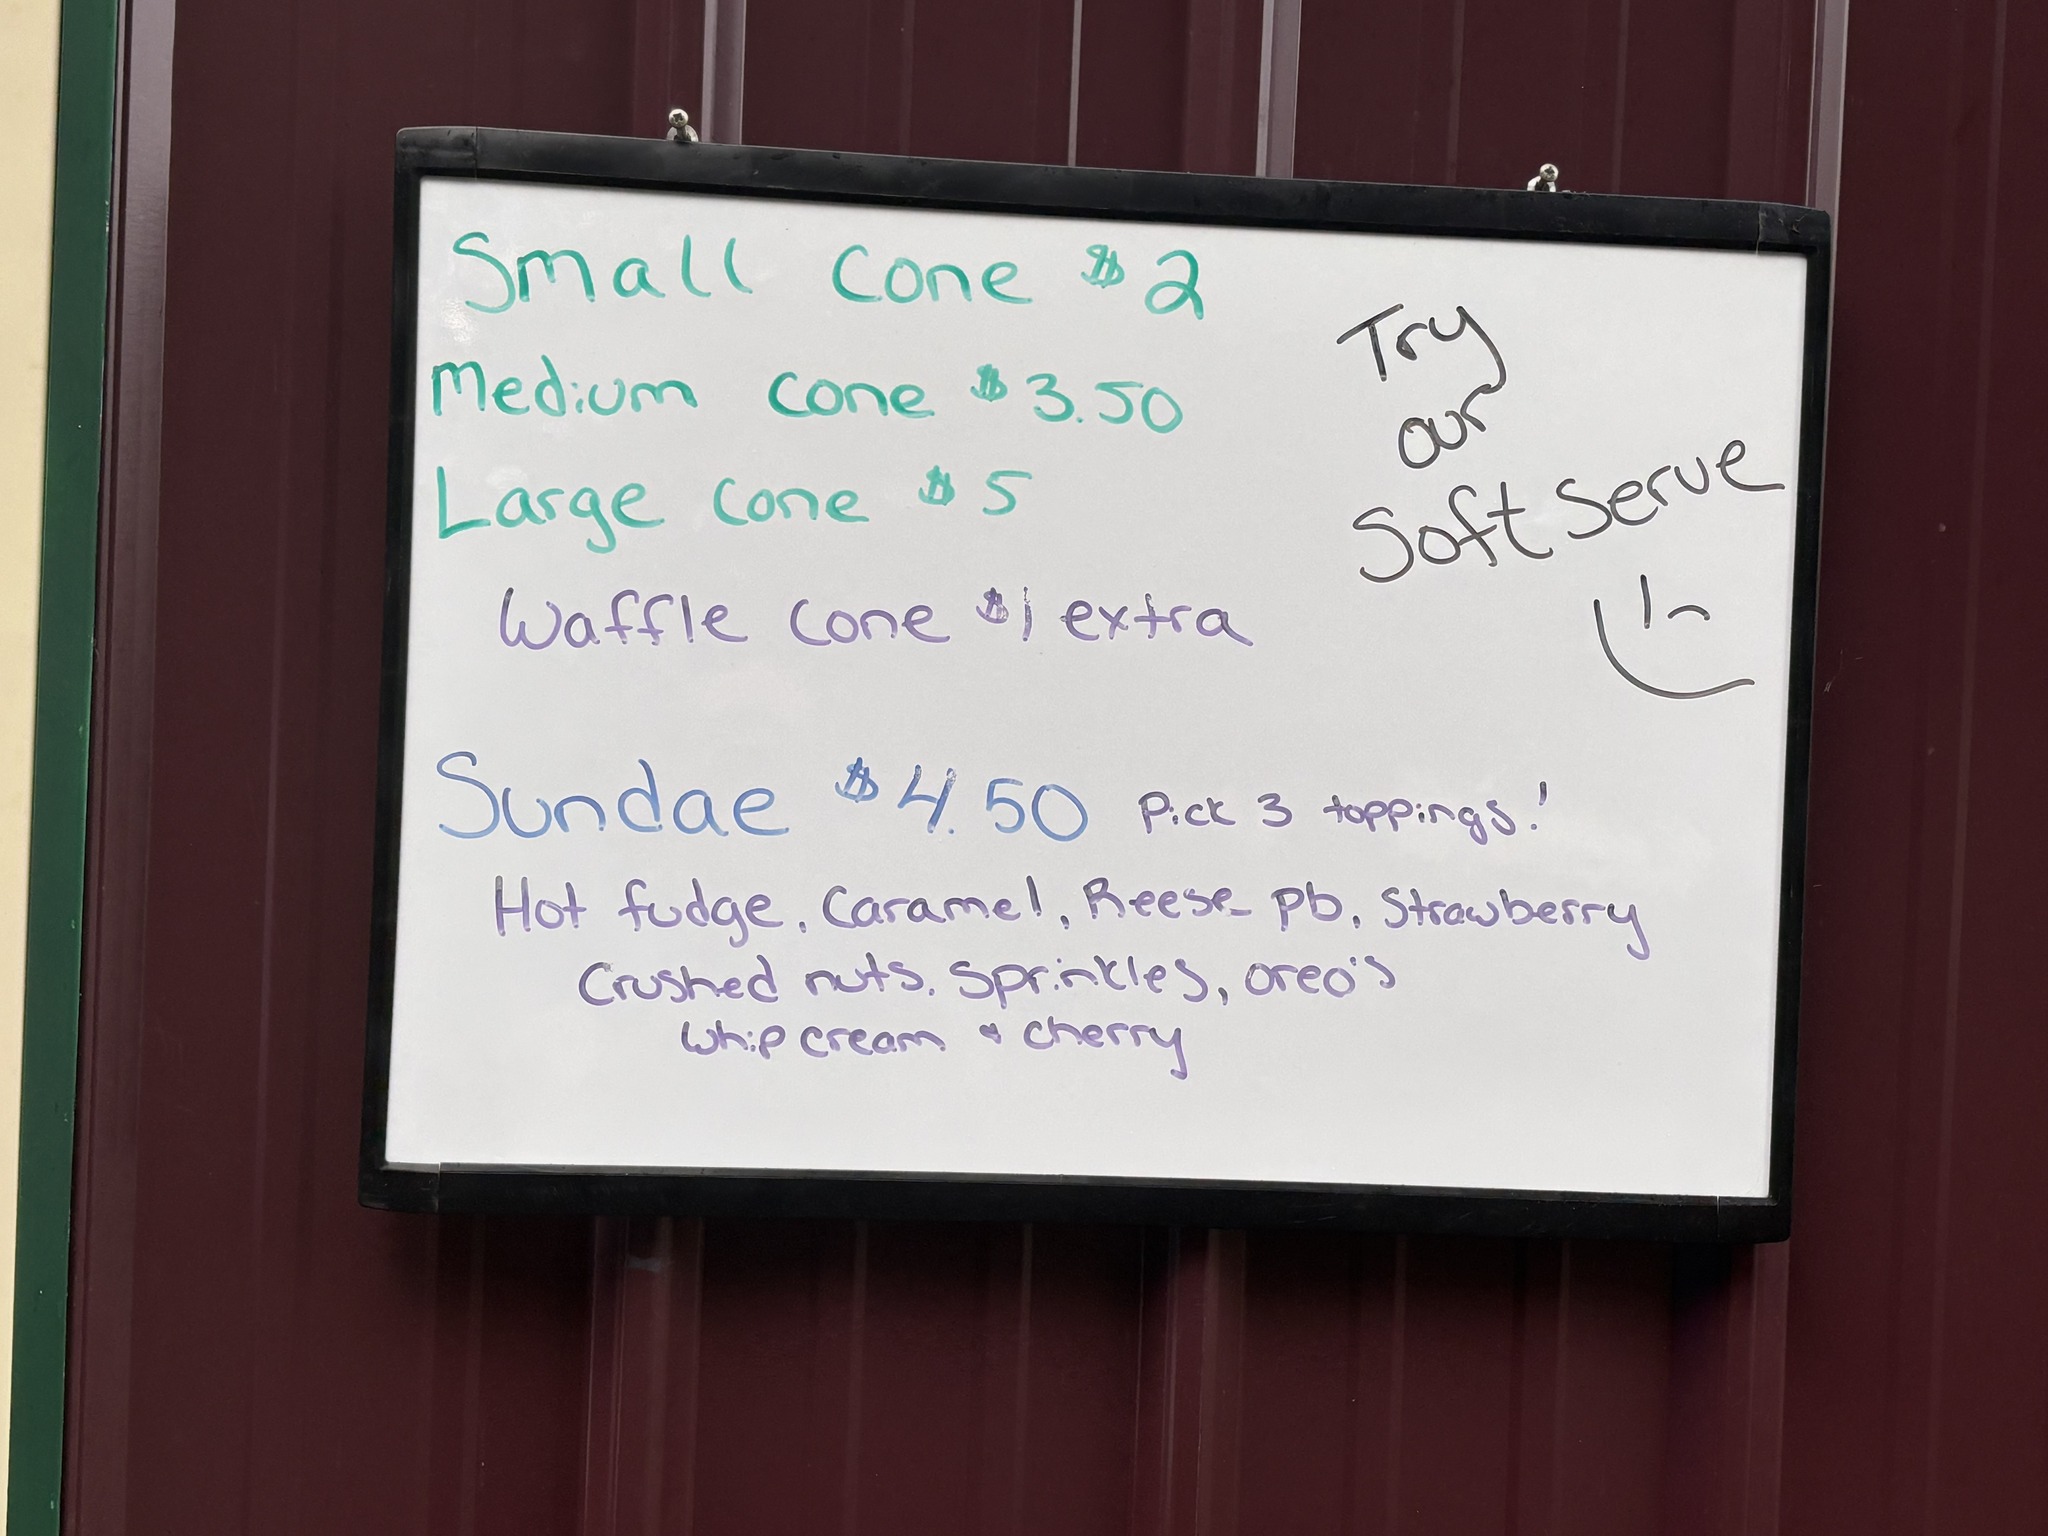 Small Cone $2
Medium Cone $3.50
Large Cone $5
Waffle Cone $1 extra
Try
our
Soft Serve
Sundae $4.50 Pick 3 toppings!
Hot fudge, Caramel, Reese Pb, Strawberry
Crushed nuts, Sprinkles, oreo's
Whip cream & cherry